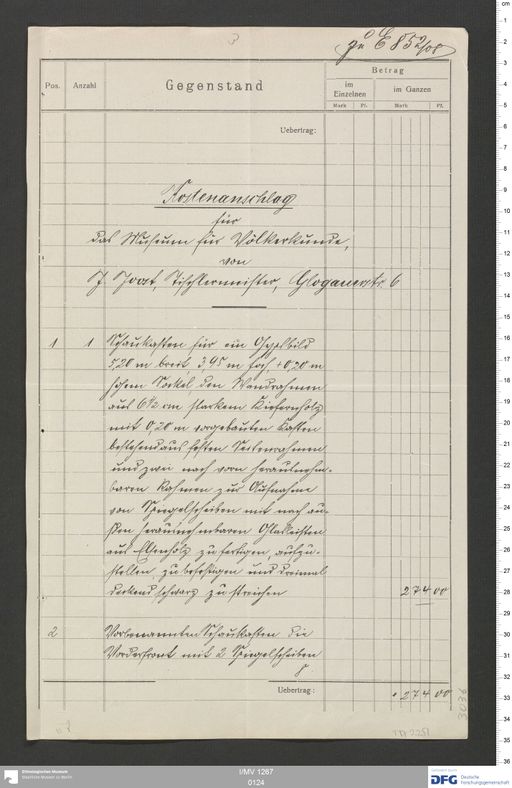 3
zu E 852/08
Pos. Anzahl Gegenstand Betrag
im Einzelnen im Ganzen
Mark Pf. Mark Pf.
Uebertrag:
Kostenanschlag
für
das Museum für Völkerkunde,
von
J. Joost, Tischlermeister, Glogauerstr. 6
1 1 Schaukasten für ein Gypsbild
5,20 m breit, 3,95 m hoch, + 0,20 m
hohem Sockel, den Wandrahmen
aus 6 1/2 cm starkem Kiefernholz
mit 0,20 m vorgebauten Kasten
bestehend aus festen Seitenrahmen
und zwei nach vorn herausnehm-
baren Rahmen zur Aufnahme
von Spiegelscheiben mit nach au-
ßen herausnehmbaren Glasleisten
aus Ellernholz zu fertigen, aufzu-
stellen, zu befestigen und dreimal
deckend schwarz zu streichen 274 00
2 Vorbenannten Schaukasten die
Vorderfront mit 2 Spiegelscheiben
Uebertrag: 274 00
3036
Ethnologisches Museum
Staatliche Museen zu Berlin
I/MV 1267
0124
DFG Deutsche
Forschungsgemeinschaft